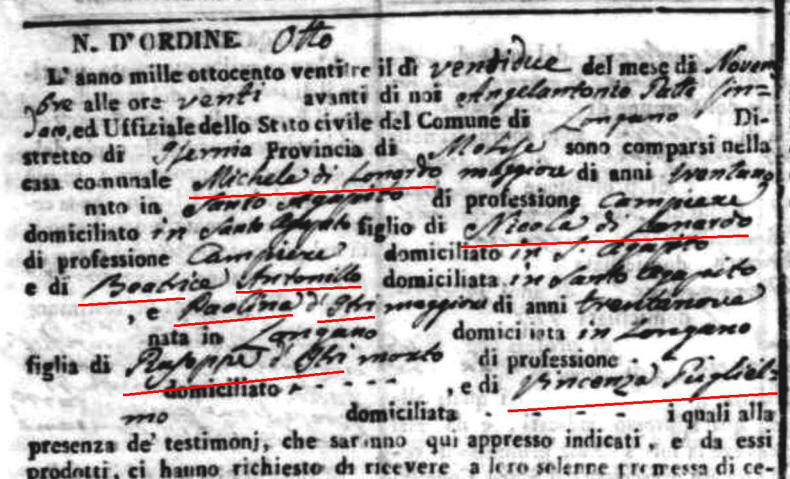 N. D'ORDINE Otto
L'anno mille ottocento ventitre il dì ventidue del mese di Novem
bre alle ore venti avanti di noi Angelantonio Sin=
daco, ed Uffiziale dello Stato civile del Comune di Longano Di-
stretto di Isernia Provincia di Molise sono comparsi nella
casa comunale Michele di Lonardo maggiore di anni trentuno
nato in Santo Agapito di professione Campiere
domiciliato in Santo Agapito figlio di Nicola di Lonardo
di professione Campiere domiciliato in S. Agapito
e di Beatrice Antonilla domiciliata in Santo Agapito
, e Paolina d' Itri maggiore di anni trentanove
nata in Longano domiciliata in Longano
figlia di Giuseppe d' Itri morto di professione
domiciliato - - - - - , e di Vincenza Pugliel=
mo domiciliata - - - - - i quali alla
presenza de' testimonj, che saranno qui appresso indicati, e da essi
prodotti, ci hanno richiesto di ricevere a loro solenne promessa di ce-